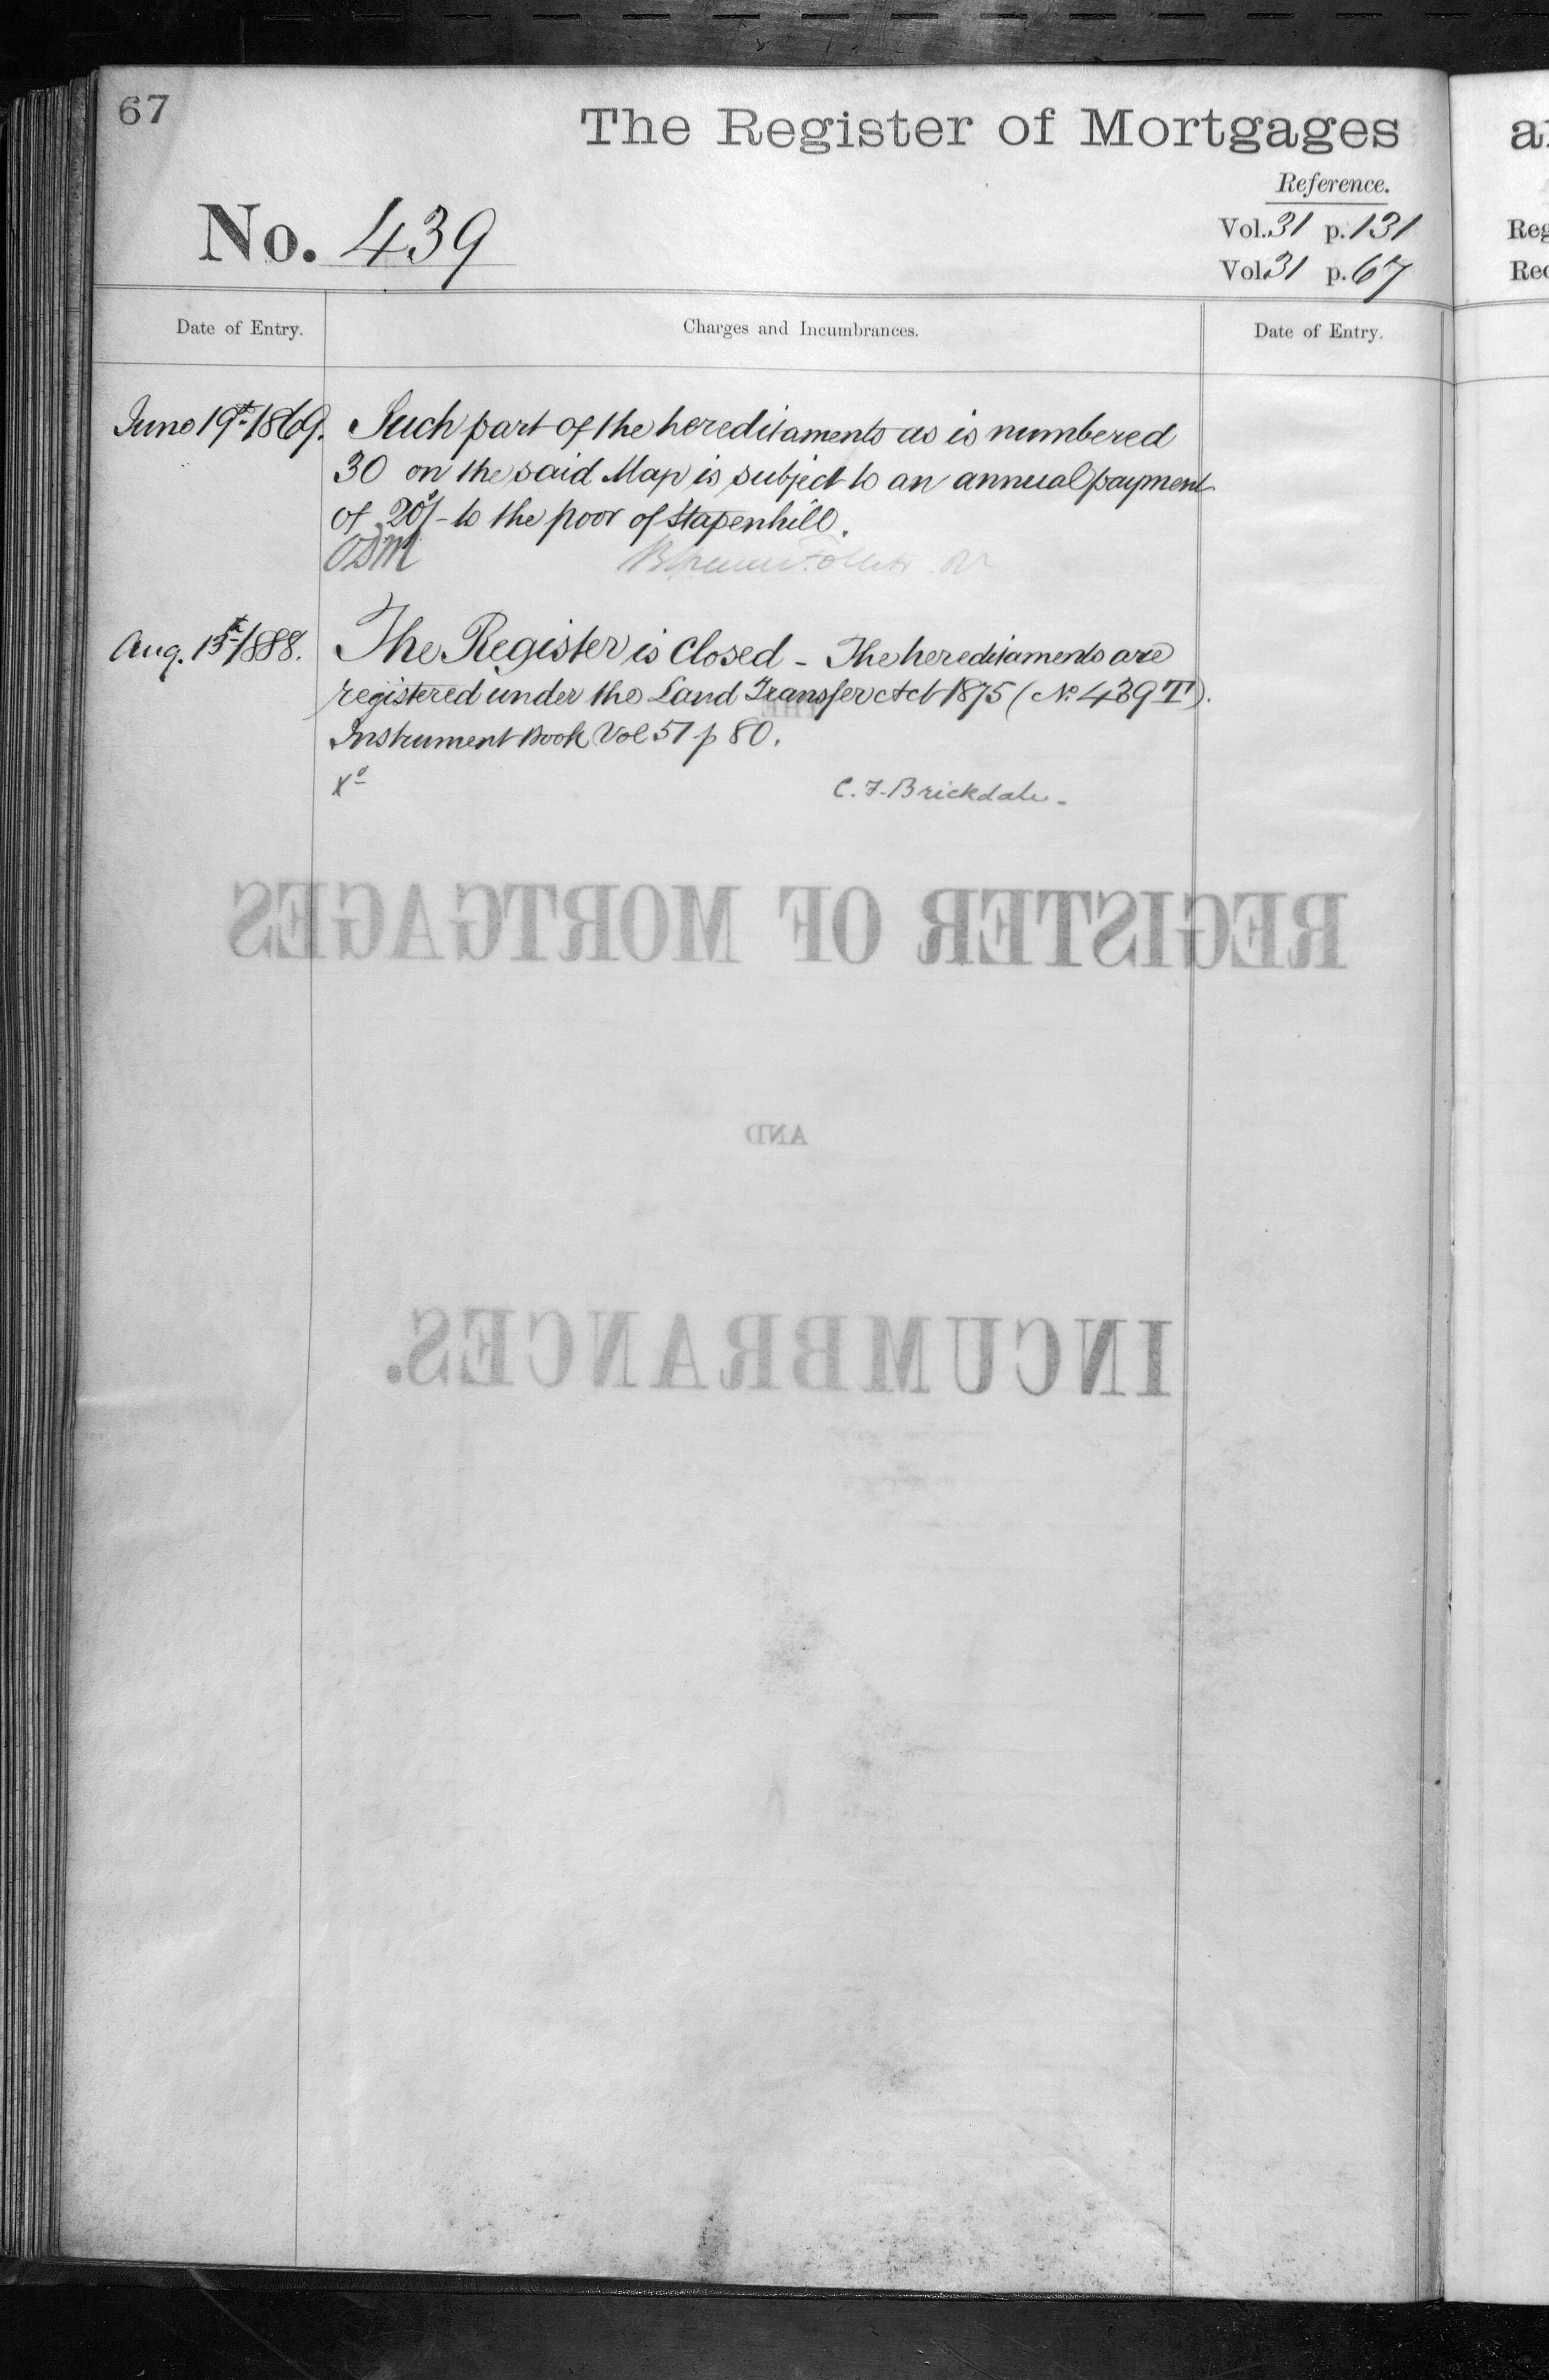 67
The Register of Mortgages
Reference.
No. 439
Vol. 31 p. 131
Vol. 31 p. 67
Date of Entry.
Charges and Incumbrances.
Date of Entry.
June 19th 1869.
Such part of the hereditaments as is numbered
30 on the said Map is subject to an annual payment
of 20s/- to the poor of Stapenhill.
Aug. 13th 1888.
The Register is Closed - The hereditaments are
registered under the Land Transfer Act 1875 (No. 439 T).
Instrument Book Vol 57 p 80.
C. F. Brickdale.
REGISTER OF MORTGAGES
AND
INCUMBRANCES.
Reg
Rec